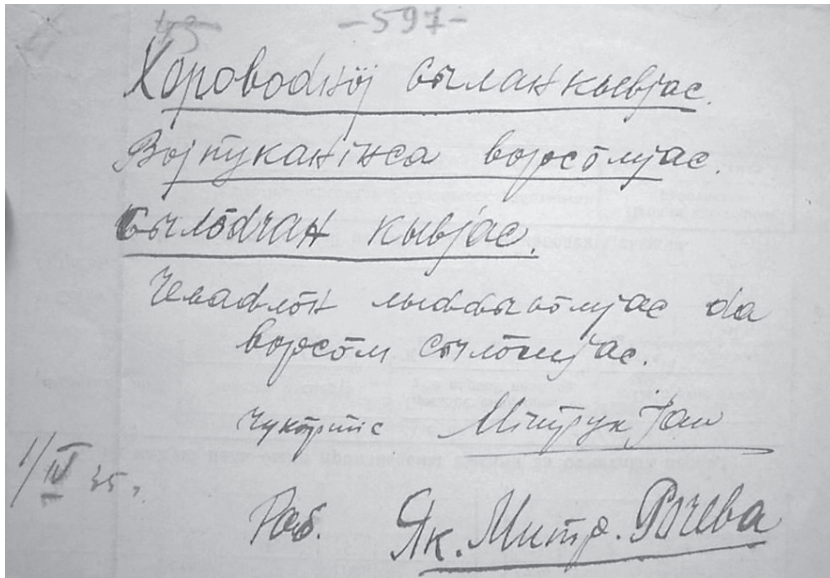 -597-
Хороводнӧј сыланкывјас.
Војпуканінса ворсӧмјас.
Сьылӧдчан кывјас.
Челадлӧн лыддьысьӧмјас да
ворсӧм сьылӧмјас.
Чукӧртіс Мітрук Јак
1/IV 35 г.
Раб. Як. Митр. Рочева